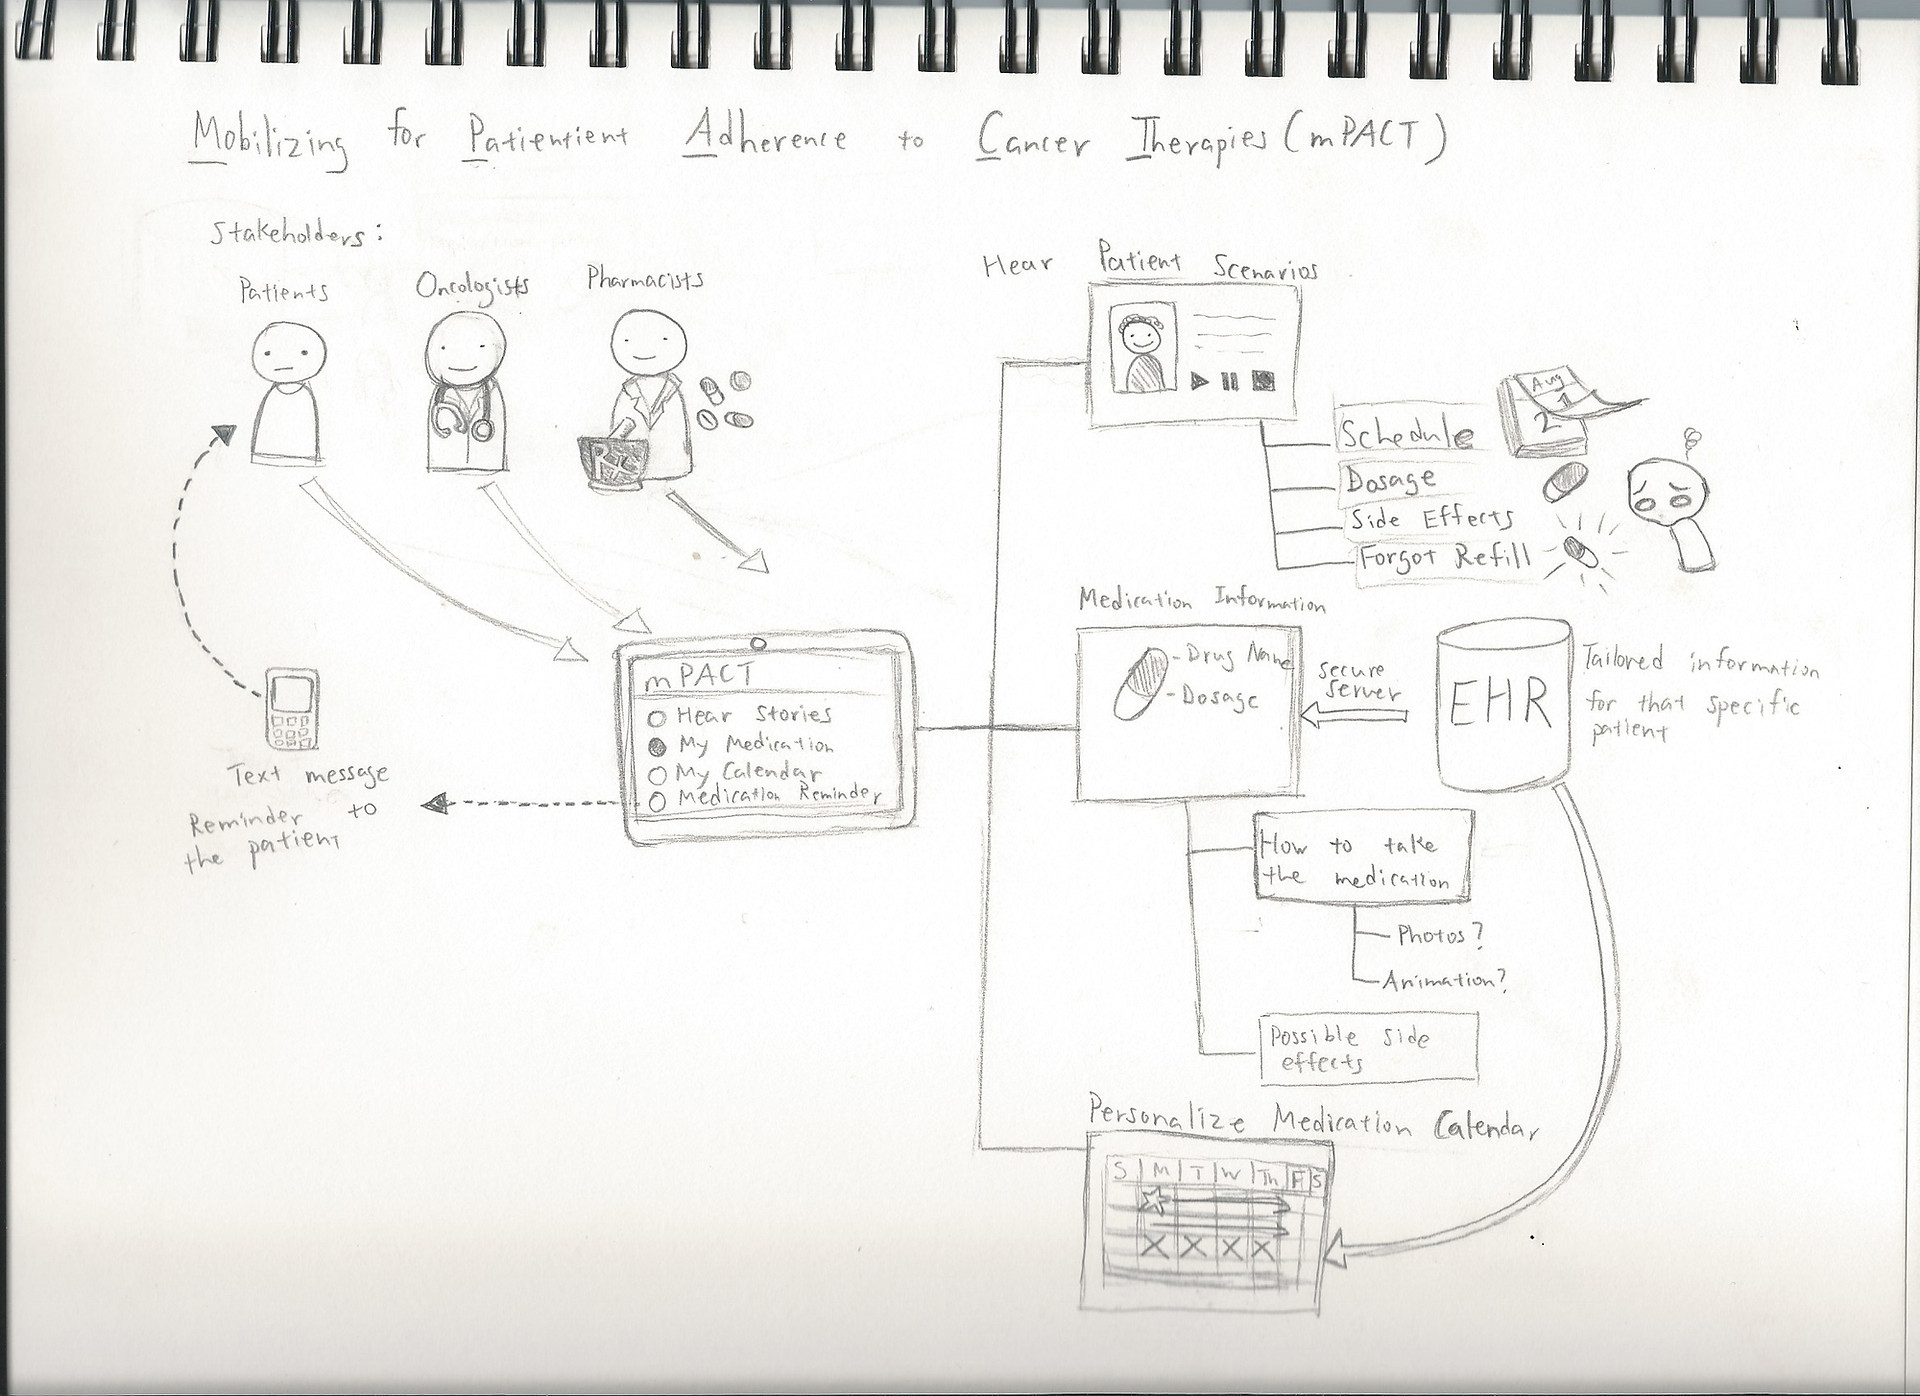 Mobilizing for Patientient Adherence to Cancer Therapies (mPACT)
Stakeholders:
Patients
Oncologists
Pharmacists
Rx
Text message
Reminder to
the patient
mPACT
Hear Stories
My Medication
My Calendar
Medication Reminder
Hear Patient Scenarios
Schedule
Dosage
Side Effects
Forgot Refill
Aug
1
2
Medication Information
- Drug Name
- Dosage
secure
server
EHR
Tailored information
for that specific
patient
How to take
the medication
Photos?
Animation?
Possible side
effects
Personalize Medication Calendar
S M T W Th F S
X X X X